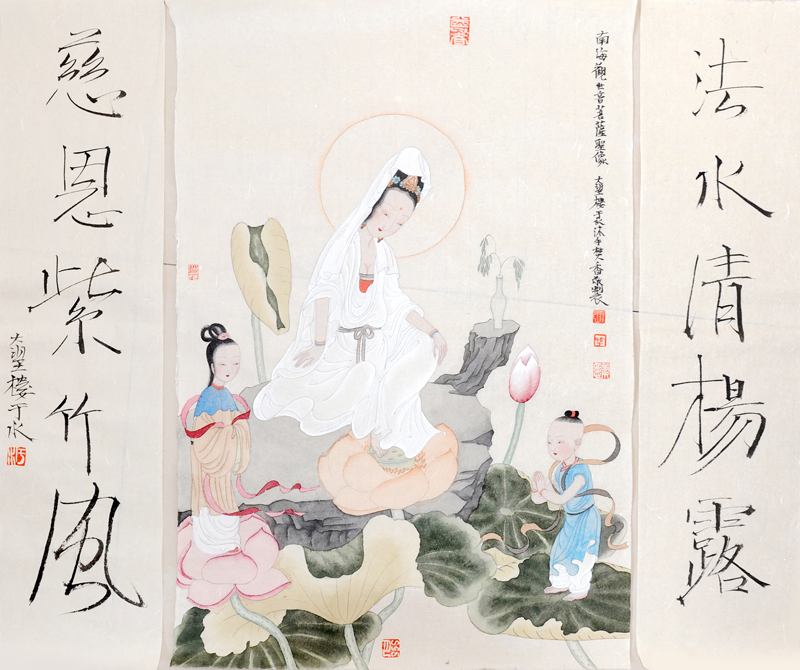 法水清楊露
南海觀世音菩薩聖像 大朢樓于水沐手焚香敬製
慈恩紫竹風
大朢樓于水